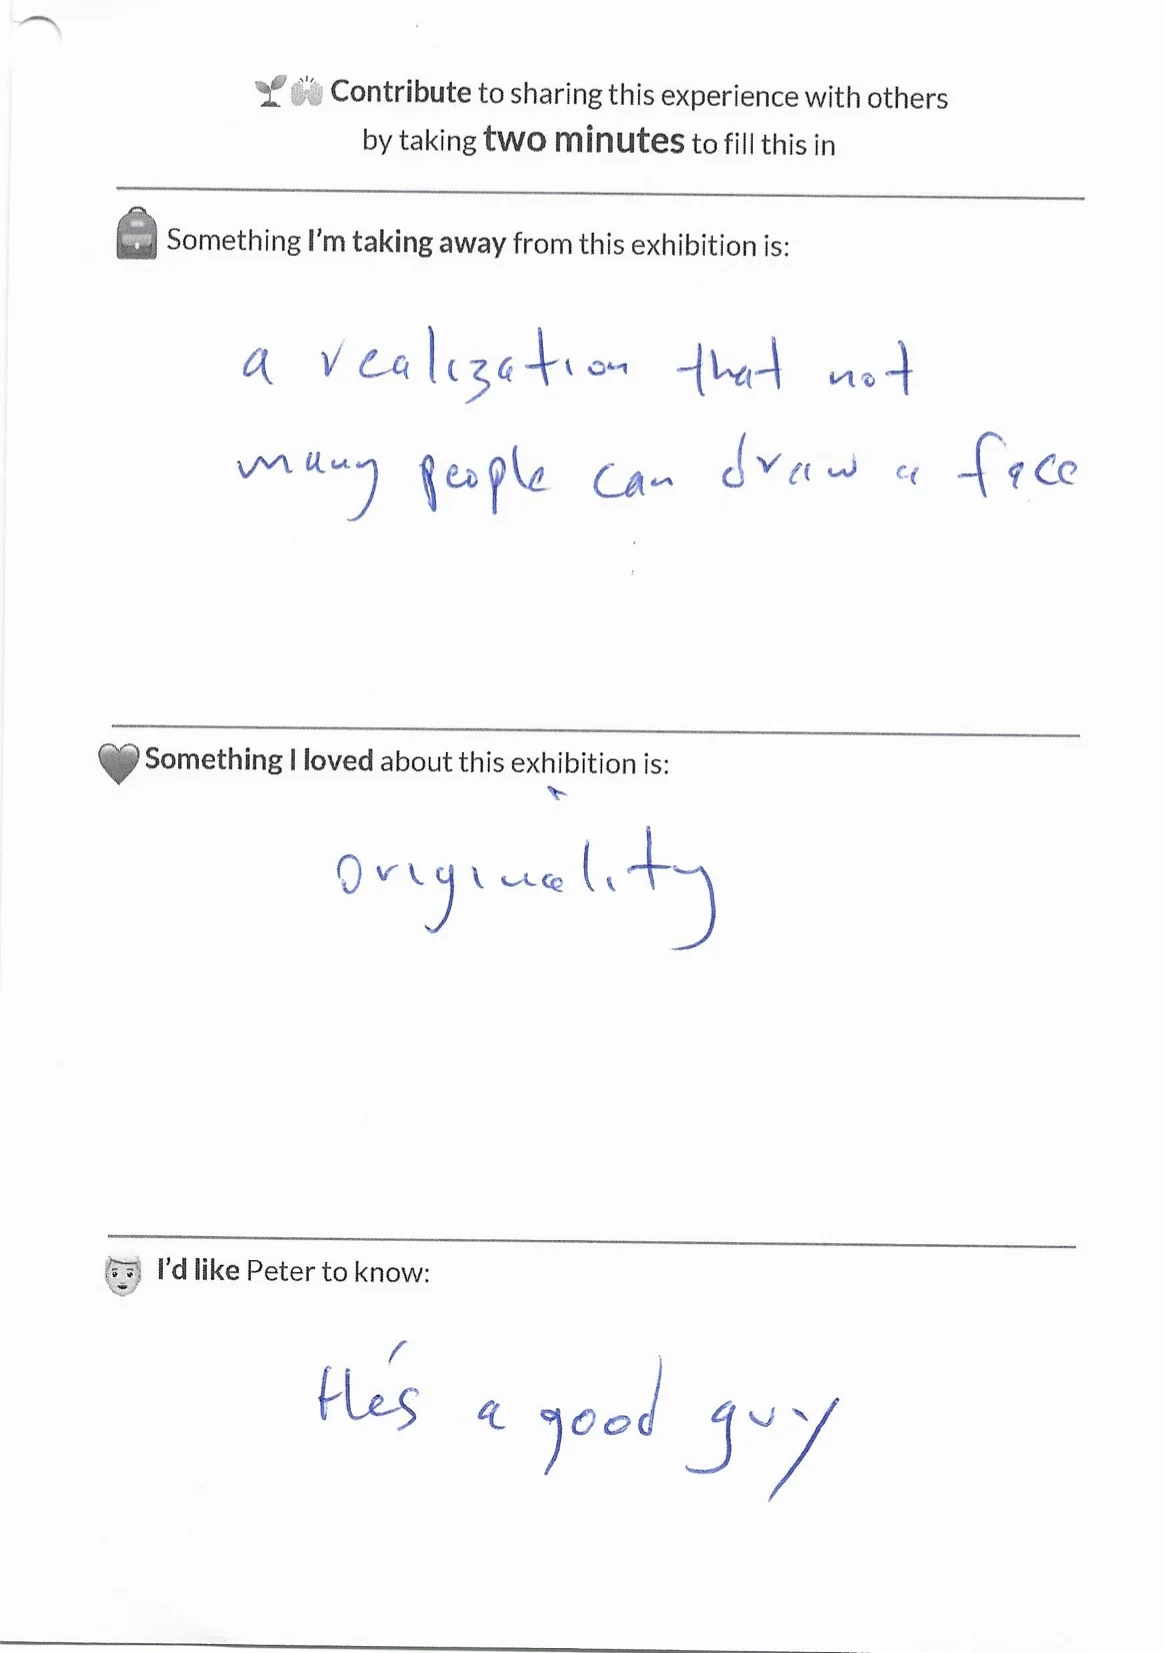 Contribute to sharing this experience with others
by taking two minutes to fill this in
Something I'm taking away from this exhibition is:
a realization that not
many people can draw a face
Something I loved about this exhibition is:
originality
I'd like Peter to know:
He's a good guy